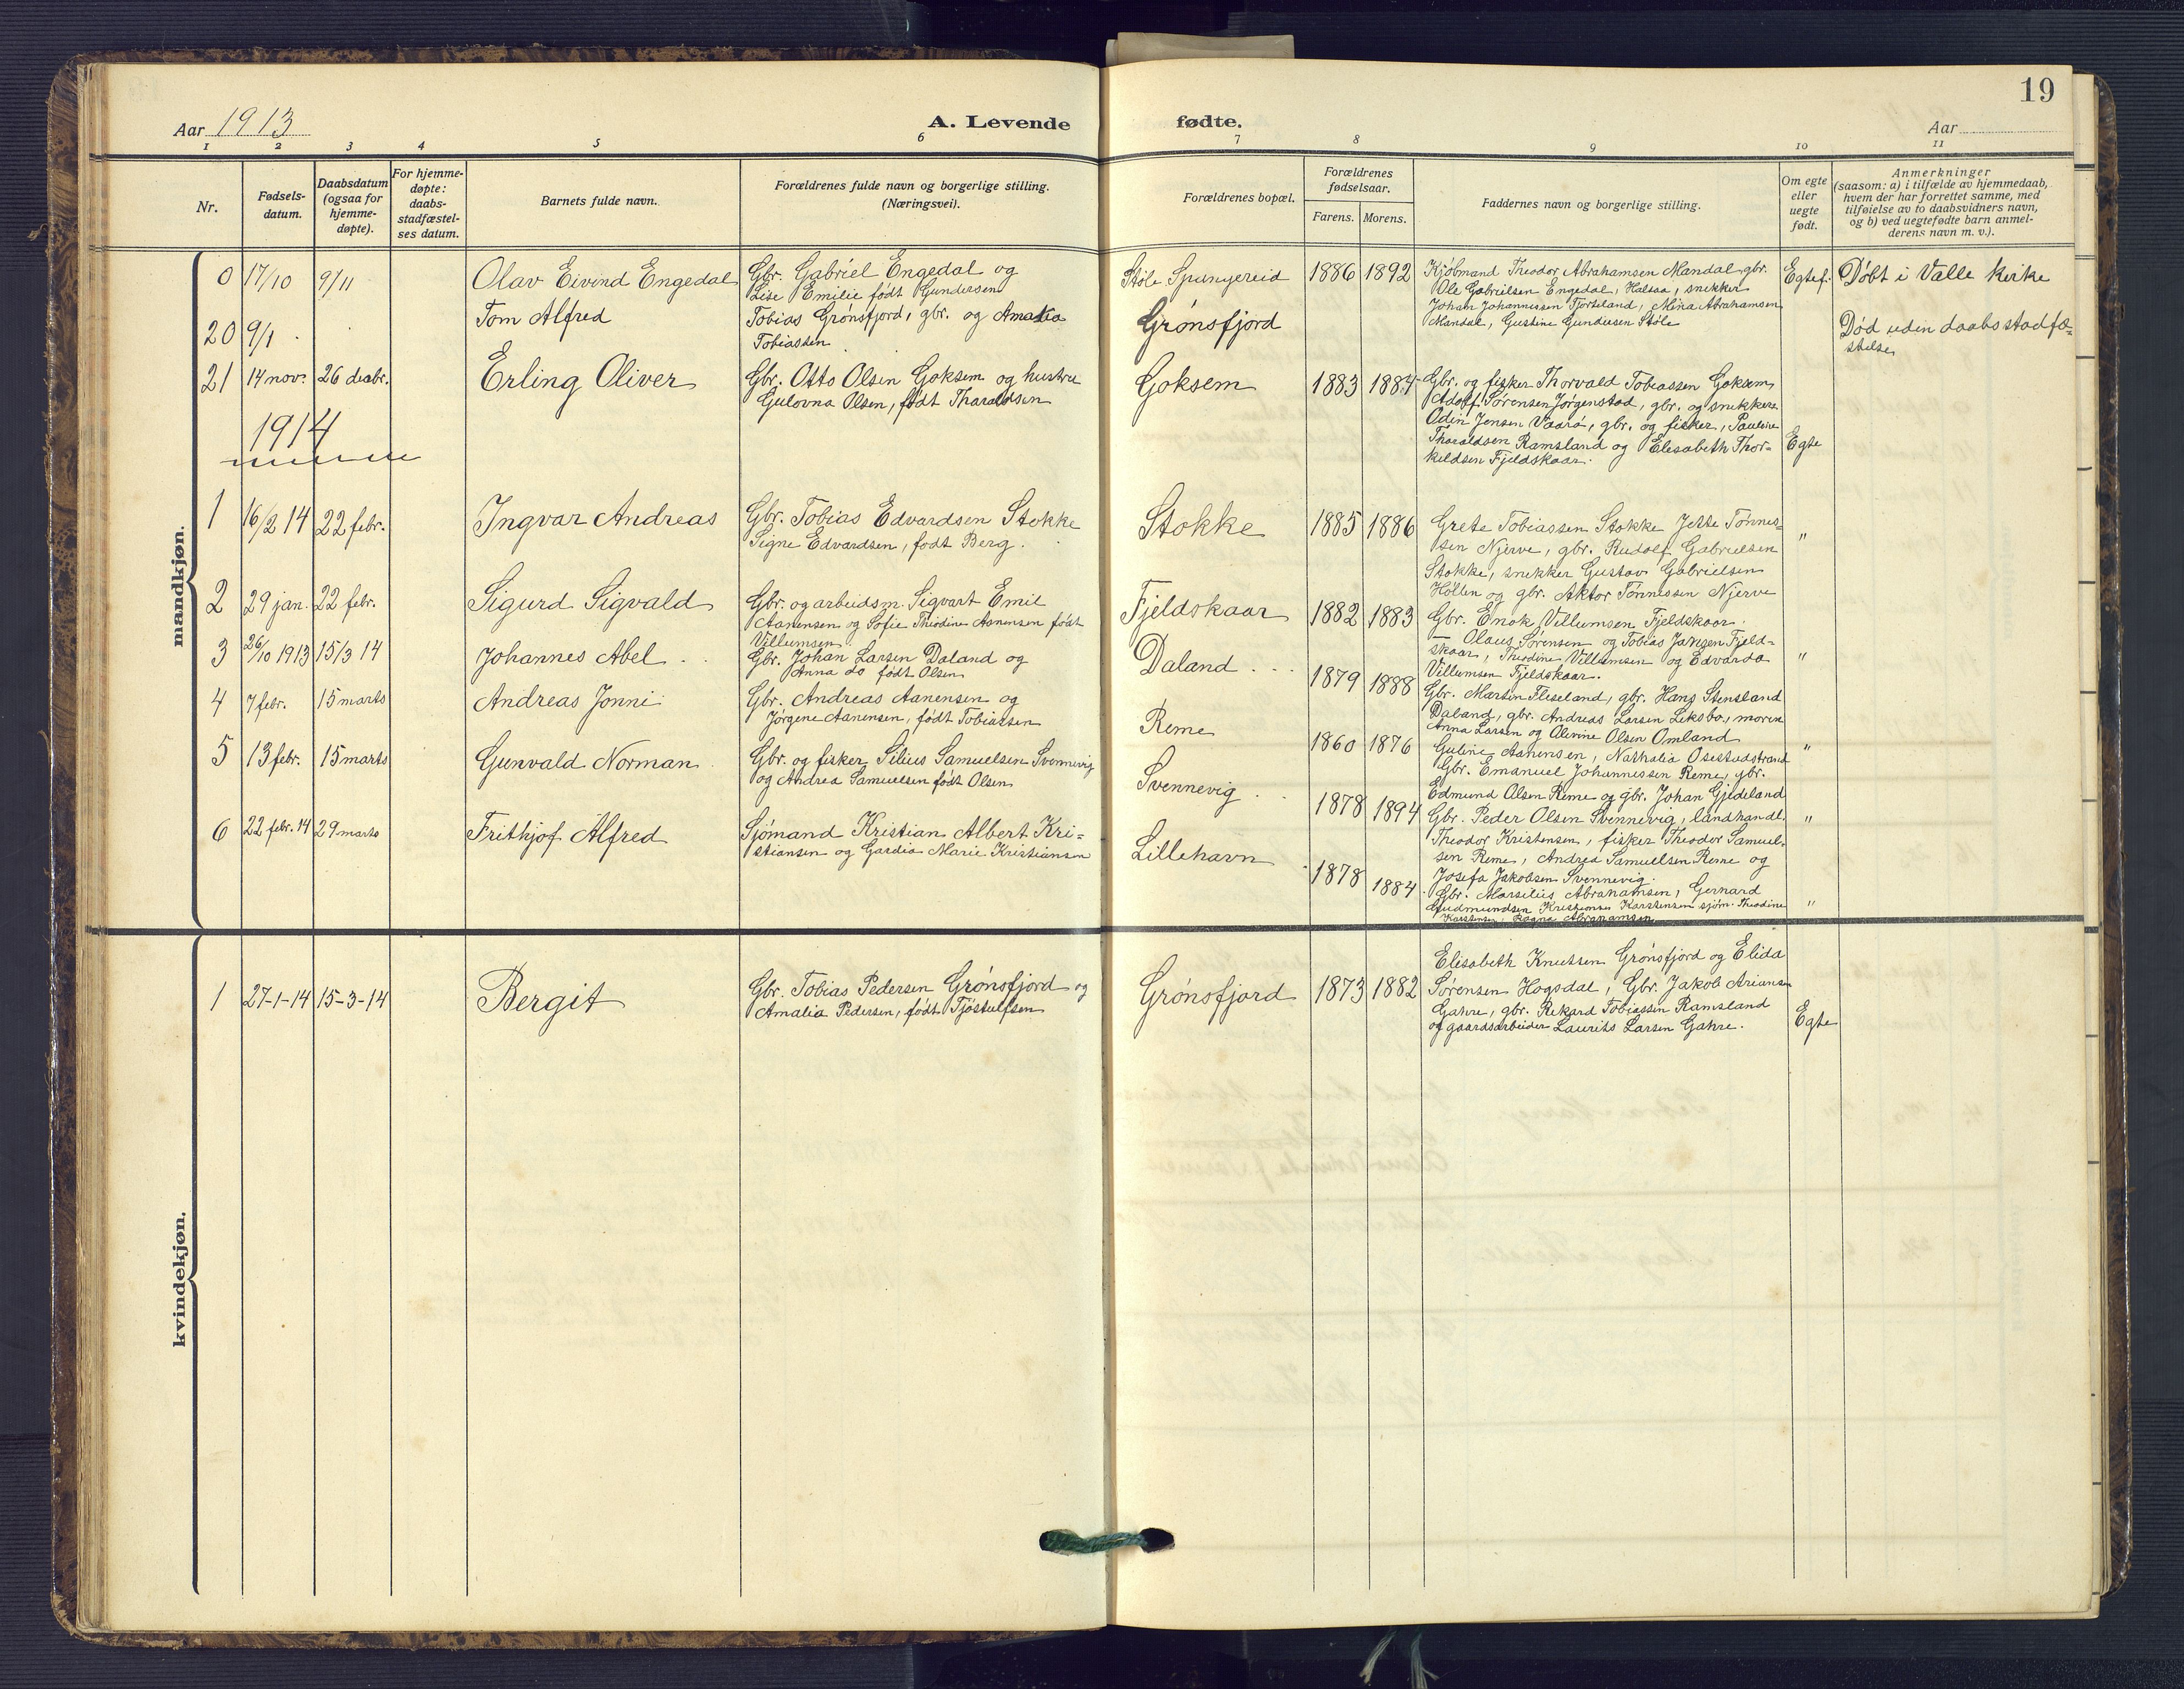 19
Aar 1913
A. Levende
fødte.
Aar
1 2 3 4 5 6 7 8 9 10 11
Nr.
Fødsels-
datum.
Daabsdatum
(ogsaa for
hjemme-
døpte).
For hjemme-
døpte:
daabs-
stadfæstel-
ses datum.
Barnets fulde navn.
Forældrenes fulde navn og borgerlige stilling.
(Næringsvei).
Forældrenes bopæl.
Forældrenes
fødselsaar.
Farens. Morens.
Faddernes navn og borgerlige stilling.
Om egte
eller
uegte
født.
Anmerkninger
(saasom: a) i tilfælde av hjemmedaab,
hvem der har forrettet samme, med
tilføielse av to daabsvidners navn,
og b) ved uegtefødte barn anmel-
derens navn m. v.).
mandkjøn.
0 17/10 9/11 Olav Eivind Engedal
Gbr. Gabriel Engedal og
Lise Emilie født Gundersen
Støle Spangereid 1886 1892
Kjøbmand Theodor Abrahamsen Mandal, gbr.
Ole Gabrielsen Engedal, Halsaa, snekker
Johan Johannissen Tjorteland, Mina Abrahamsen
Mandal, Gustine Gundersen Støle
Egtef. Døbt i Valle kirke
20 9/1 Tom Alfred
Tobias Grønsfjord, gbr. og Amalia
Tobiassen
Grønsfjord
Død uden daabsstadfæ-
stelse
21 14 nov. 26 decbr. Erling Oliver
Gbr. Otto Olsen Goksem og hustru
Gulovna Olsen, født Tharaldsen
Goksem 1883 1884
Gbr. og fisker Thorvald Tobiassen Goksem,
Adolf Sørensen Jørgenstad, gbr. og snekker
Odin Jensen Vaarø, gbr. og fisker, Pauline
Tharaldsen Ramsland og Elisabeth Thor-
keldsen Fjeldskaar.
Egte
1914
1 16/2 14 22 febr. Ingvar Andreas
Gbr. Tobias Edvardsen Stokke
Signe Edvardsen, født Berg.
Stokke 1885 1886
Grete Tobiassen Stokke Jette Tønnes-
sen Njerve, gbr. Rudolf Gabrielsen
Stokke, snekker Gustav Gabrielsen
Høllen og gbr. Aktor Tønnessen Njerve
"
2 29 jan. 22 febr. Sigurd Sigvald
Gbr. og arbeidsm. Sigvart Emil
Aanensen og Sofie Theodine Aanensen født
Villumsen.
Fjeldskaar 1882 1883
Gbr. Enok Villumsen Fjeldskaar.
— Olaus Sørensen og Tobias Jansen Fjeld-
skaar, Theodine Villumsen og Edvarda
Villumsen Fjeldskaar.
"
3 26/10 1913 15/3 14 Johannes Abel
Gbr. Johan Larsen Daland og
Anna do født Olsen
Daland 1879 1888
Gbr. Martin Fliseland, gbr. Hans Stensland
Daland, gbr. Andreas Larsen Liksbo, moren
Anna Larsen og Olevine Olsen Omland
"
4 7 febr. 15 marts Andreas Jonni
Gbr. Andreas Aanensen og
Jørgene Aanensen, født Tobiassen
Reme 1860 1876
Guline Aanensen, Nathalia Osestadstrand
Gbr. Emanuel Johannessen Reme, gbr.
Edmund Olsen Reme og gbr. Johan Gjideland
5 13 febr. 15 marts Gunvald Norman
Gbr. og fisker Silius Samuelsen Svennevig
og Andrea Samuelsen født Olsen
Svennevig 1878 1894
Gbr. Peder Olsen Svennevig, landhandl.
Theodor Kristensen, fisker Theodor Samuel-
sen Reme, Andrea Samuelsen Reme og
Josefa Jakobsen Svennevig.
"
6 22 febr. 14 29 marts Frithjof Alfred
Sjømand Kristian Albert Kri-
stiansen og Gardia Marie Kristiansen
Lillehavn 1878 1884
Gbr. Marselius Abrahamsen, Gernard
Gudmundsen Kristianes Karstensen sjøm. Theodine
Karstensen, Ragna Abrahamsen
"
kvindekjøn.
1 27-1-14 15-3-14 Bergit
Gbr. Tobias Pedersen Grønsfjord og
Amalia Pedersen, født Tjøstulfsen
Grønsfjord 1873 1882
Elisabeth Knutsen Grønsfjord og Elida
Sørensen Hogsdal, Gbr. Jakob Ariansen
Gahre, gbr. Rikard Tobiassen Ramsland
og gaardsarbeider Laurits Larsen Gahre.
Egte